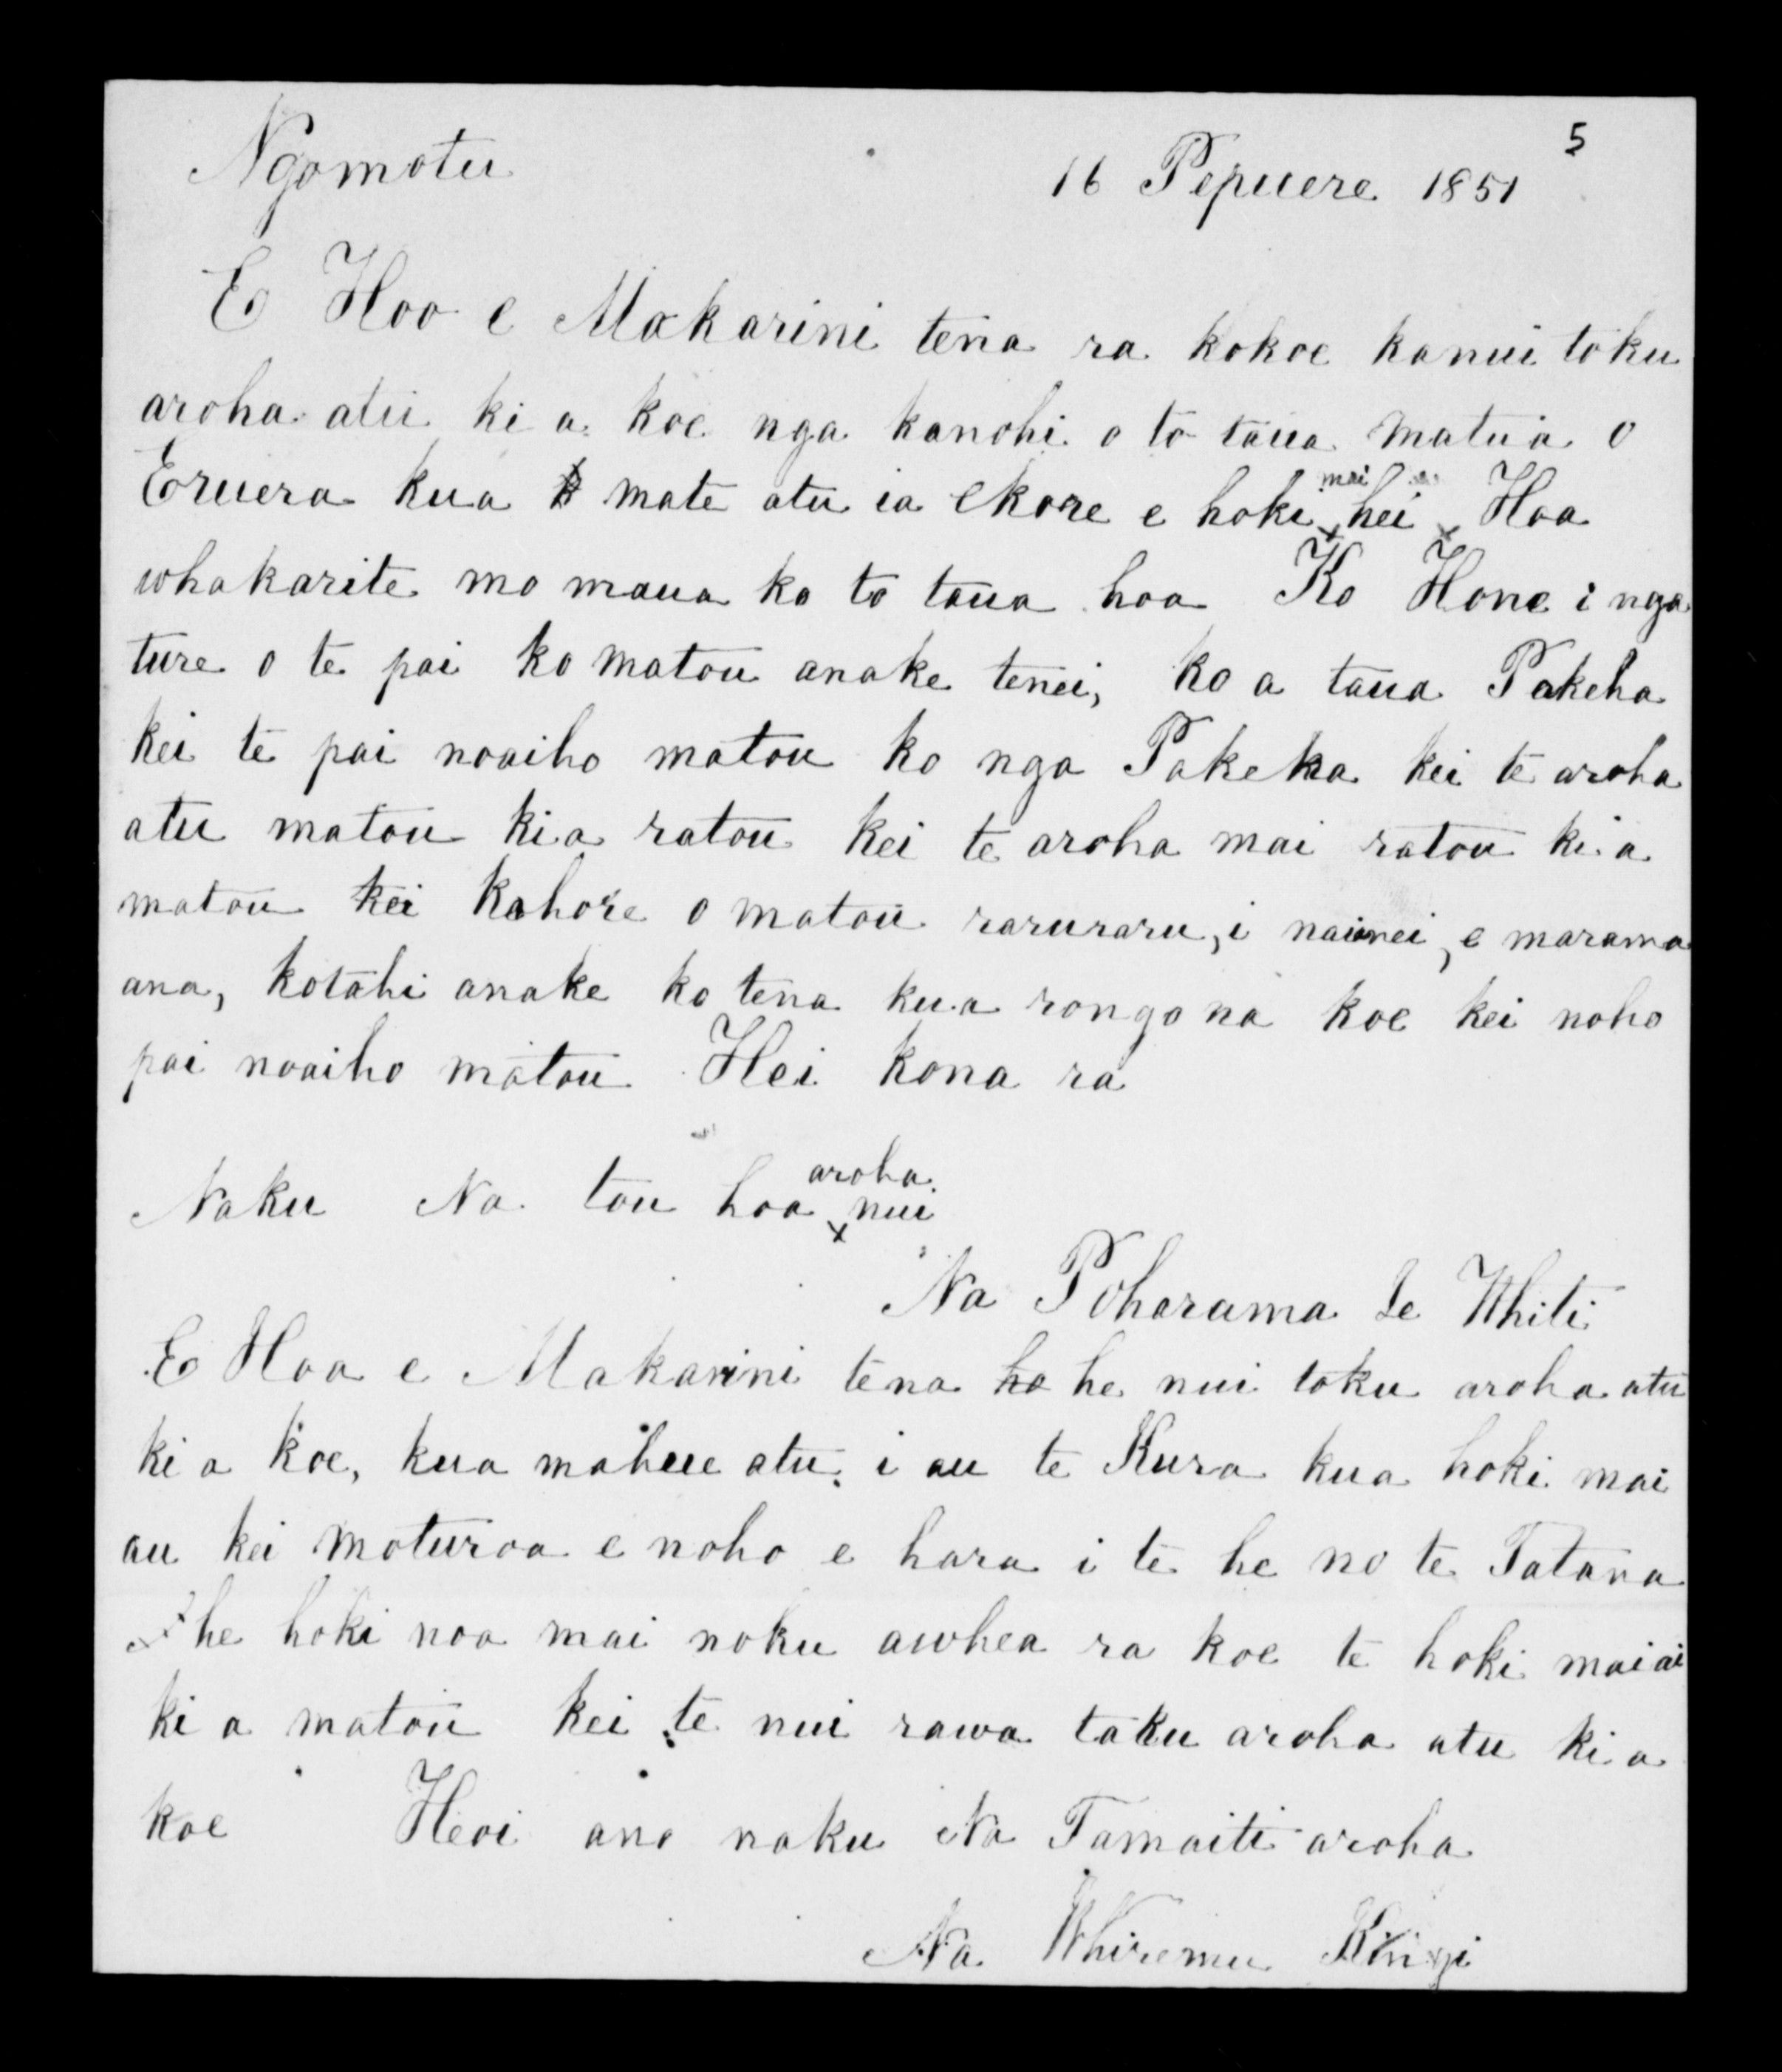 5
Ngamotu 16 Pepuere 1851
E Hoa e Makarini tena ra kokoe kanui toku
aroha atu ki a koe nga kanohi o to taua matua o
Eruera kua mate atu ia ekore e hoki mai hei Hoa
whakarite mo maua ko to taua hoa Ko Hone i nga
ture o te pai ko matou anake tenei, ko a taua Pakeha
kei te pai noaiho matou ko nga Pakeha kei te aroha
atu matou kia ratou kei te aroha mai ratou ki a
matou kei kahore o matou raruraru, i naianei, e marama
ana, kotahi anake ko tena kua rongo na koe kei noho
pai noaiho matou Hei kona ra
Naku Na tou hoa aroha nui
Na Poharama Te Whiti
E Hoa e Makarini tena ho he nui toku aroha atu
ki a koe, kua mahue atu i au te Kura kua hoki mai
au kei moturoa e noho e hara i te he no te Tatana
he hoki noa mai noku awhea ra koe te hoki mai ai
ki a matou kei te nui rawa taku aroha atu ki a
koe Heoi ano naku Na Tamaiti aroha
Na Whiremu Kingi